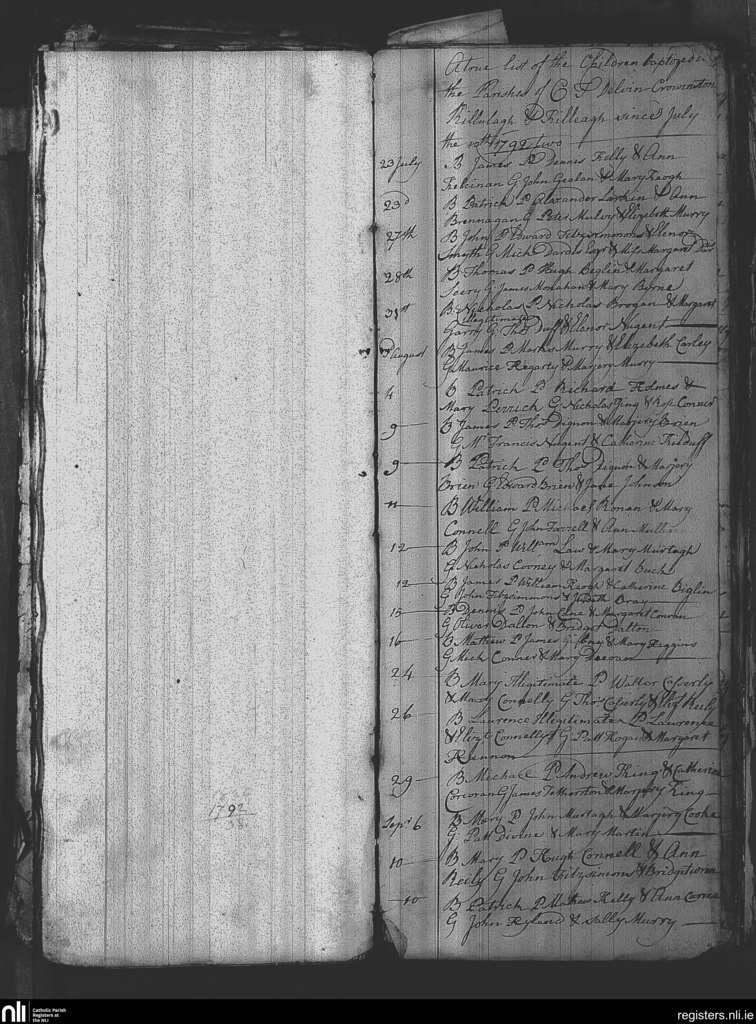 1792
A true list of the Children baptized in
the Parishes of C P Delvin Crowinstown
Killulagh & Killeagh since July
the 1792 two
23 July B James P Dennis Kelly & Ann
G John Gealan & Mary Keogh
23d B Patrick P Alexander Larkin & Ann
Brennagan G Peter Mulvy & Elizebeth Murry
27th B John P Edward Fitzsimmons & Elenor
Smyth G Mich Dardis Esqr & Margaret
28th B Thomas P Hugh Beglin & Margaret
Seery G James Monahan & Mary Byrne
31st B Nicholas P Nicholas Brogan & Margaret
(Illegitimate)
Garry G Thos Duff & Elenor Nugent
August B James P Marks Murry & Elizebeth Carley
G Maurice Hegarty & Marjery Murry
4 B Patrick P Richard Holmes &
Mary Derrick G Nicholas King & Rose Connor
9 B James P Thos Dignon & Marjery Brien
G Mr Francis Nugent & Catherine
9 B Patrick P Thos Dignon & Marjory
Brien G Edward Brien & Jane Johnson
11 B William P Michael Ronan & Mary
Connell G John Farrell & Ann
12 B John P Willam Law & Mary Murtagh
G Nicholas Cooney & Margaret
12 B James P William Keogh & Catherine Beglin
G John Fitzsimmons & Judith Bray
15 B Dennis P John & Margaret
G Oliver Dalton & Bridget Dalton
16 B Mathew P James & Mary Higgins
G Mich Conner & Mary
24 B Mary Illegitimate P Walter Cafferly
& Mary Connelly G Thos Cafferly & Eliz Reily
26 B Laurence Illegitimate P Lawrence
& Elizt Connelly G Patt Hogan & Margaret
29 B Michael P Andrew King & Catherine
Corcoran G James & Marjery King
Sepr 6 B Mary P John Murtagh & Marjery Cooke
G Patt Divine & Mary Martin
10 B Mary P Hugh Connell & Ann
Reily G John Fitzsimons & Bridget
10 B Patrick P Mathew Kelly & Ann
G John Hyland & Sally Murry
nli
Catholic Parish
Registers at
the NLI
registers.nli.ie